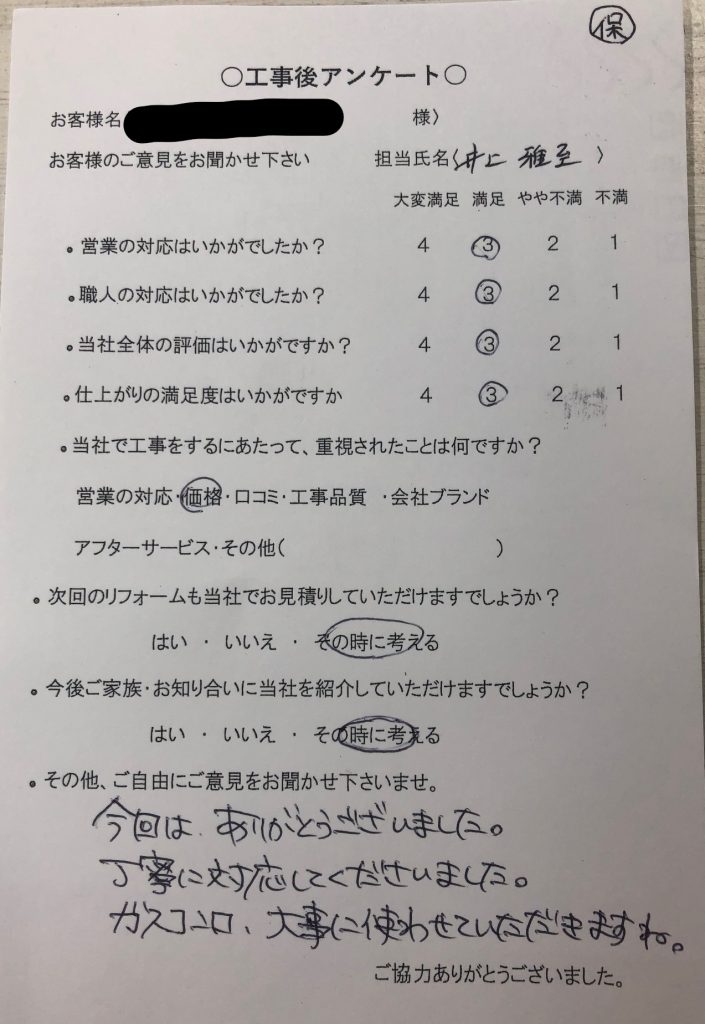 保
○工事後アンケート○
お客様名 様〉
お客様のご意見をお聞かせ下さい 担当氏名〈井上 雅至 〉
大変満足 満足 やや不満 不満
・営業の対応はいかがでしたか？ 4 3 2 1
・職人の対応はいかがでしたか？ 4 3 2 1
・当社全体の評価はいかがですか？ 4 3 2 1
・仕上がりの満足度はいかがですか 4 3 2 1
・当社で工事をするにあたって、重視されたことは何ですか？
営業の対応・価格・口コミ・工事品質 ・会社ブランド
アフターサービス・その他( )
・次回のリフォームも当社でお見積りしていただけますでしょうか？
はい ・ いいえ ・ その時に考える
・今後ご家族・お知り合いに当社を紹介していただけますでしょうか？
はい ・ いいえ ・ その時に考える
・その他、ご自由にご意見をお聞かせ下さいませ。
今回は、ありがとうございました。
丁寧に対応してくださいました。
ガスコンロ、大事に使わせていただきますね。
ご協力ありがとうございました。